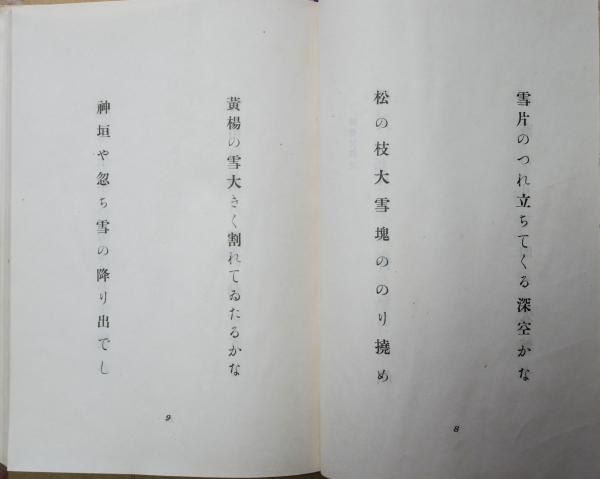 雪片のつれ立ちてくる深空かな
松の枝大雪塊ののり撓め
8
黃楊の雪大きく割れてゐたるかな
神垣や忽ち雪の降り出でし
9